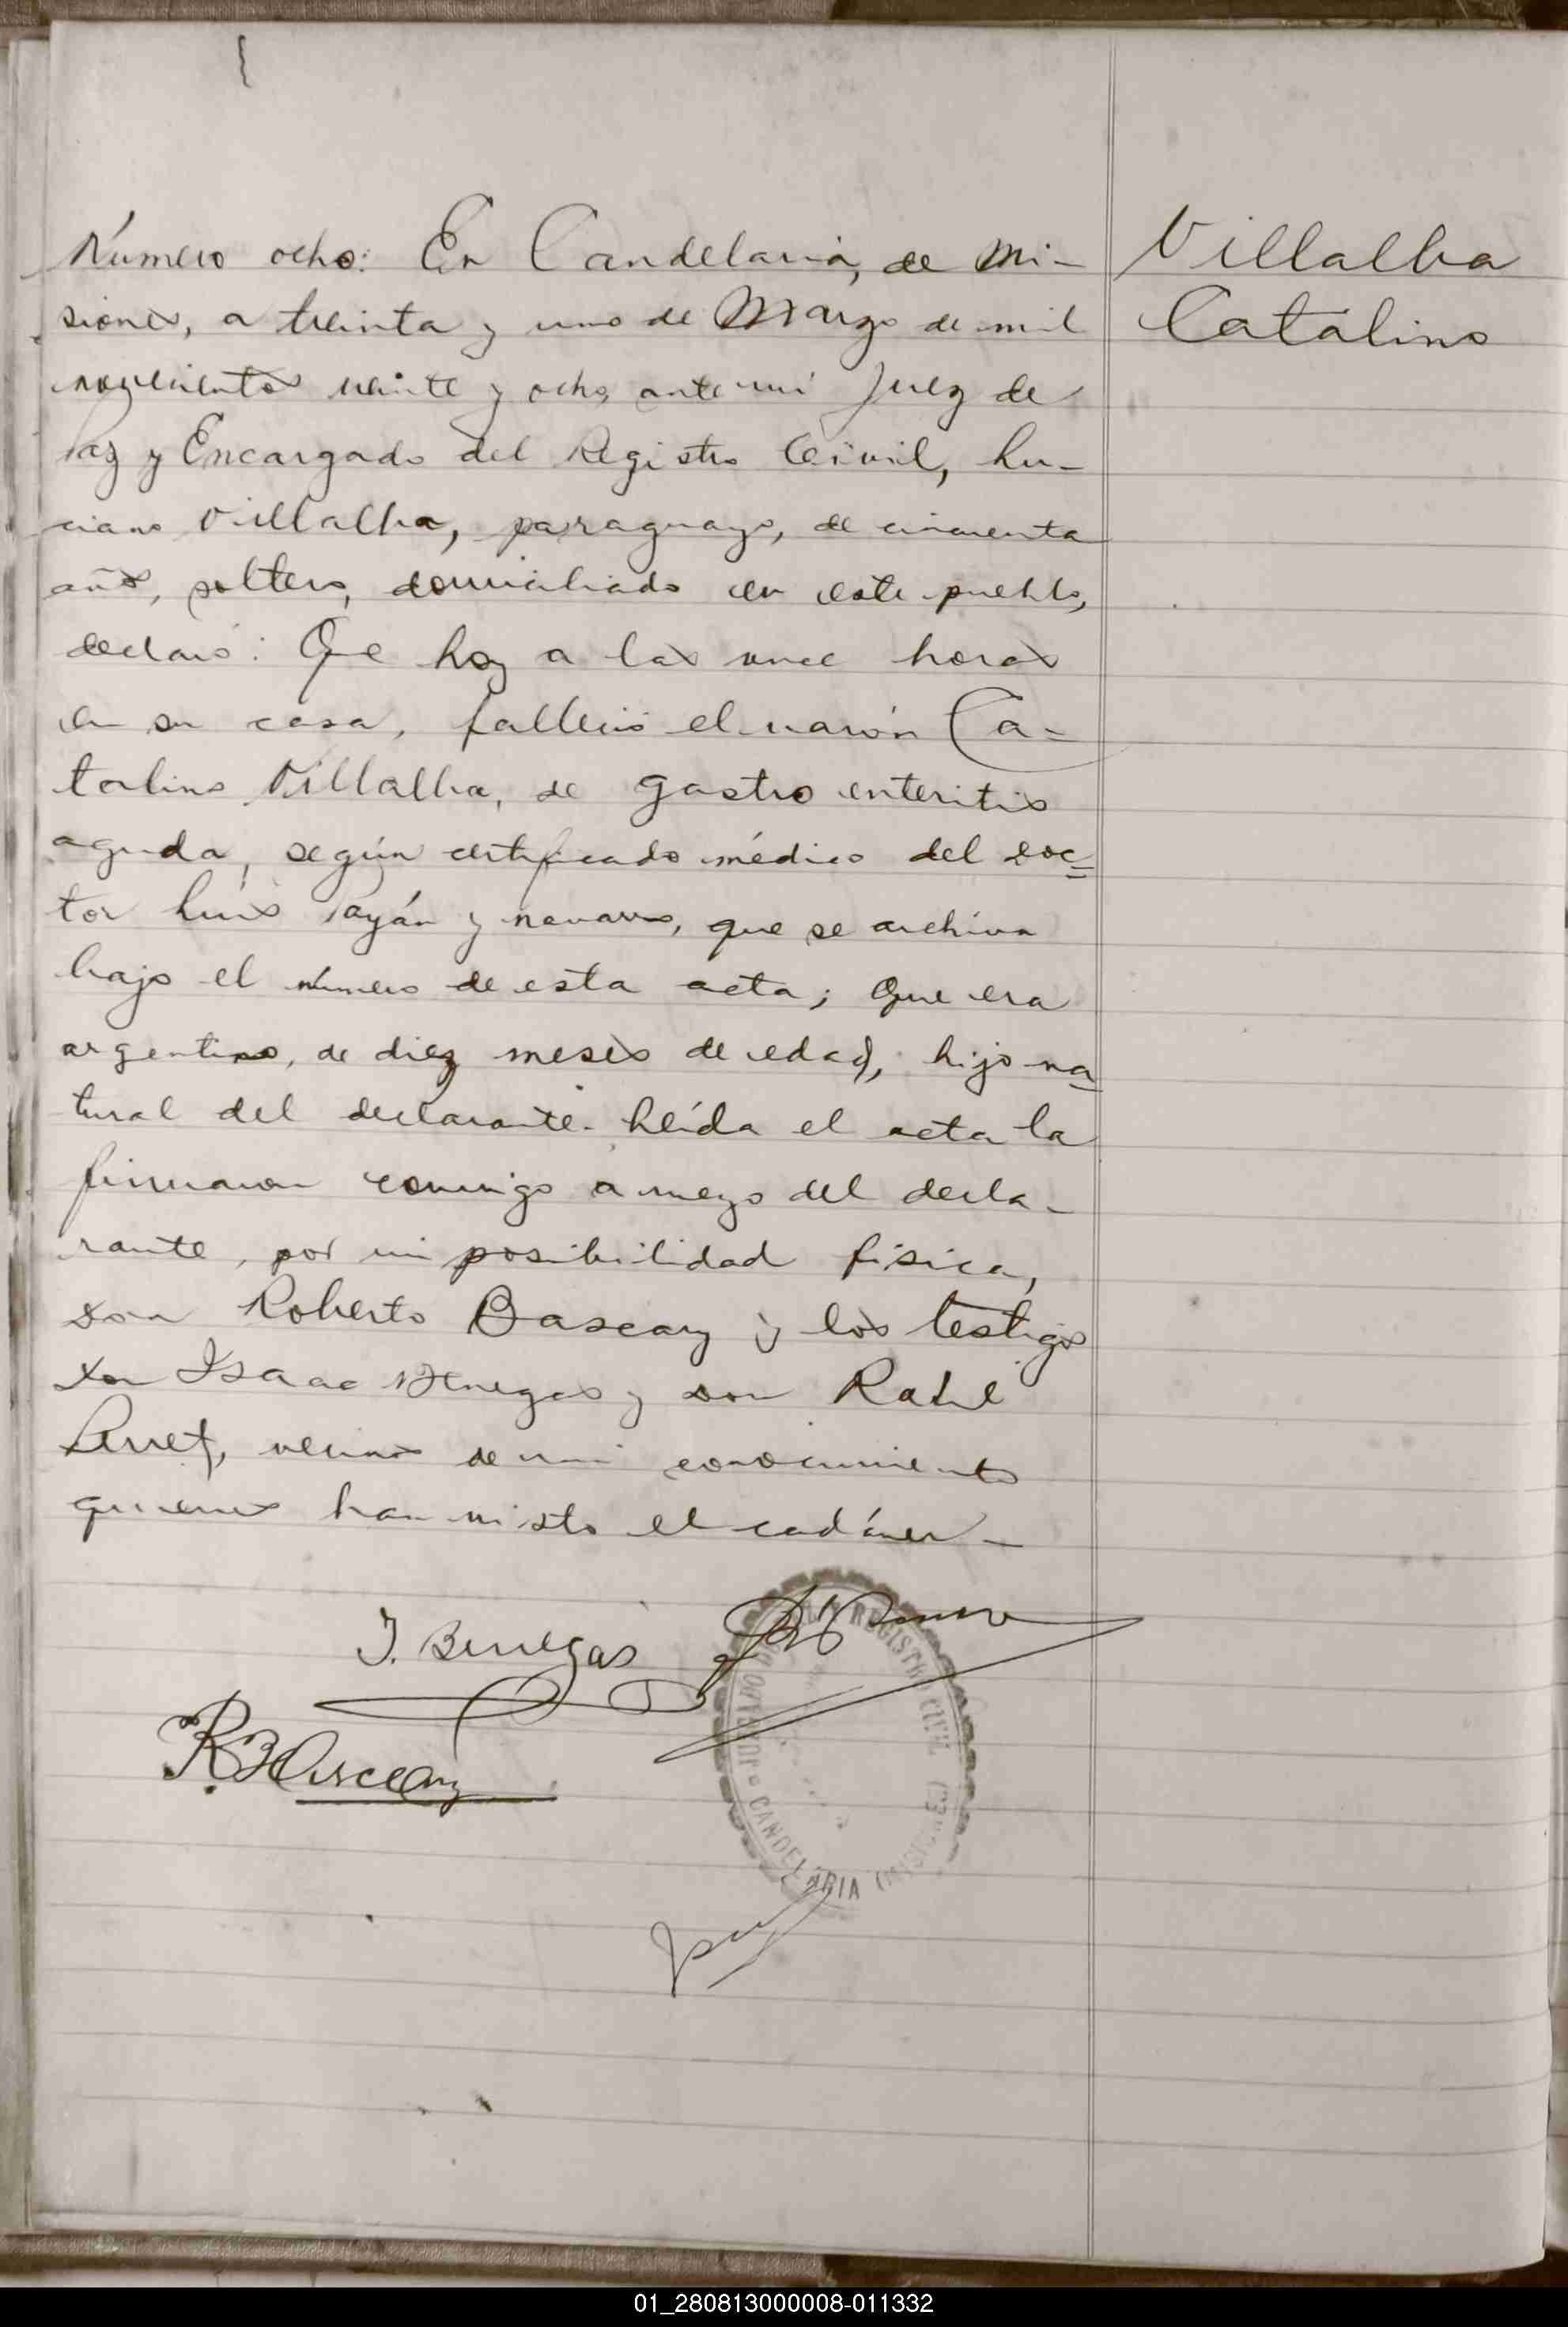 Número ocho: En Candelaria, de Mi-
siones, a treinta y uno de Marzo de mil
novecientos veinte y ocho, ante mí Juez de
Paz y Encargado del Registro Civil, Lu-
ciano Villalba, paraguayo, de cincuenta
años, soltero, domiciliado en este pueblo,
declaró: Que hoy a las once horas
en su casa, falleció el varón Ca-
talino Villalba, de gastro enteritis
aguda, según certificado médico del doc=
tor Luis Payán y Navarro, que se archiva
bajo el número de esta acta; Que era
argentino, de diez meses de edad, hijo na
tural del declarante. Leída el acta la
firmaron conmigo a ruego del decla-
rante, por imposibilidad física,
don Roberto Bascary y los testigos
don Isaac Benegas y don Raúl
vecinos de mi conocimiento
quienes han visto el cadáver -
Villalba
Catalino
I. Benegas
R. Bascary
REGISTRO CIVIL
CANDELARIA (MISIONES)
01_280813000008-011332